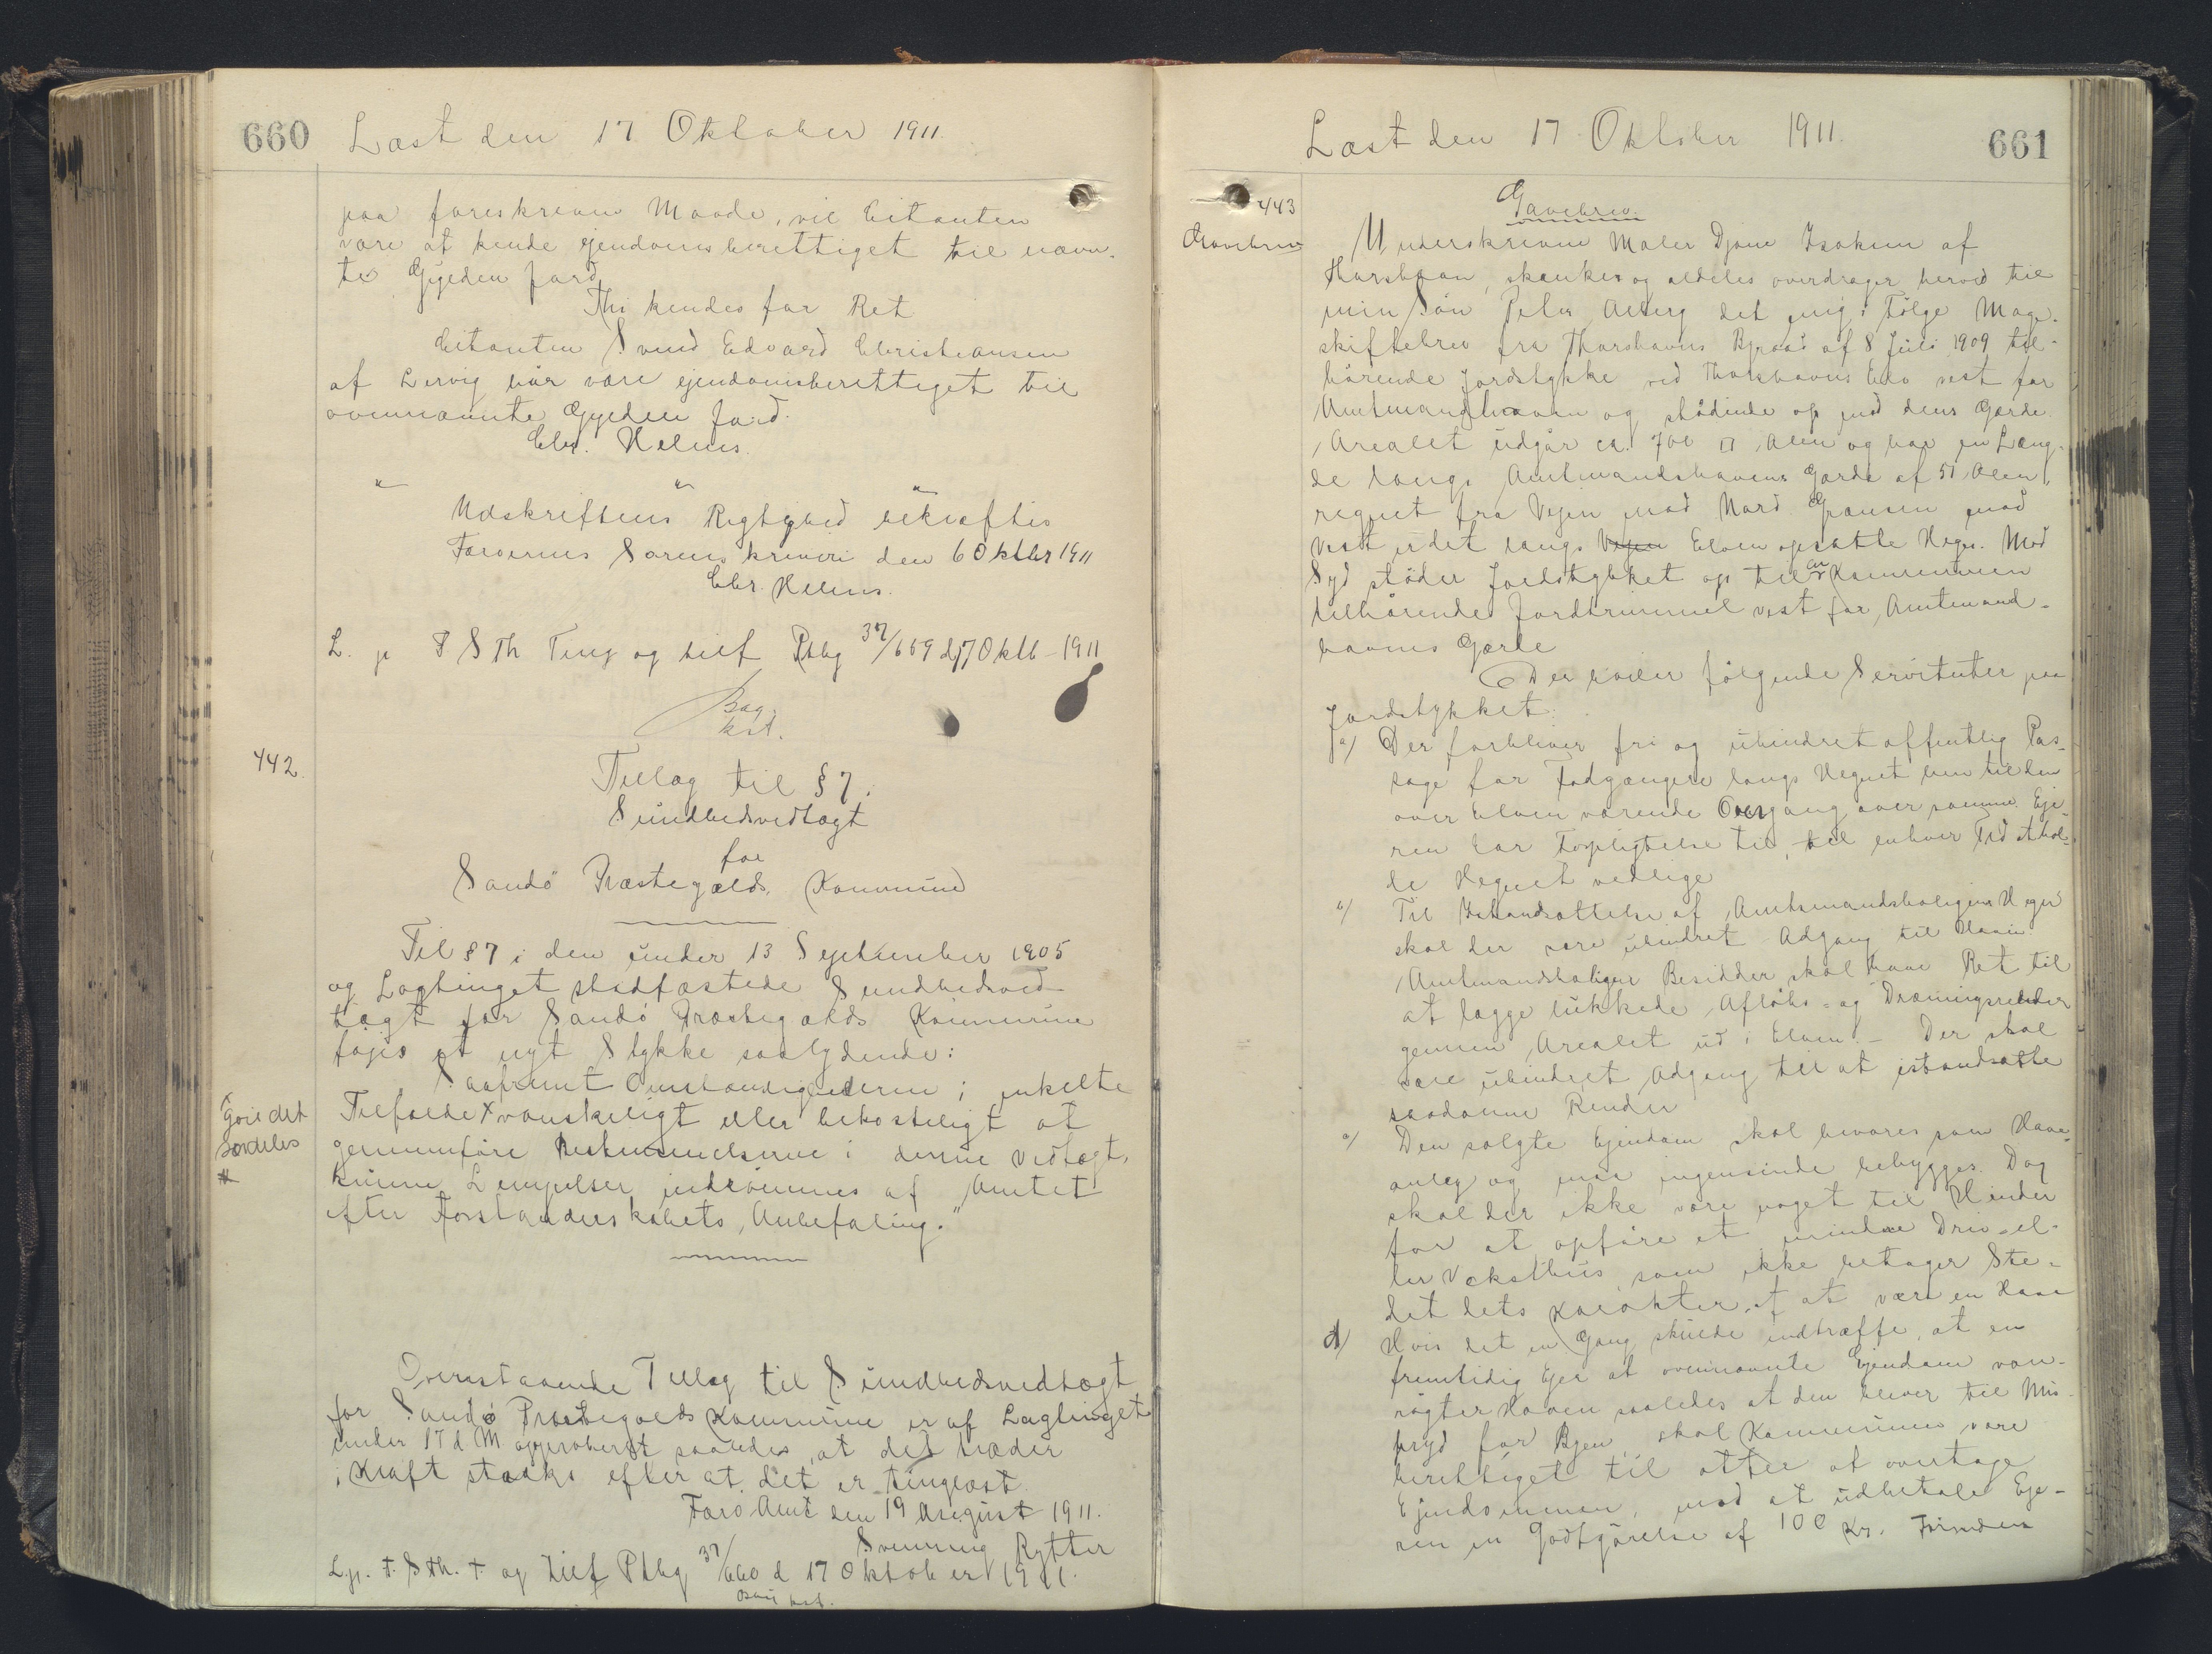 660 Læst den 17 Oktober 1911.
paa foreskreven Maade, vil Citanten
være at kende ejendomsberettiget til nævn-
te Gyeden Jord
Thi kendes for Ret
Citanten Svend Edvard Christiansen
af Lervig bør være ejendomsberettiget til
ovennævnte Gyeden Jord.
Chr. Helms.
" " "
Udskriftens Rigtighed bekræftes
Færøernes Sorenskriveri den 6 Oktbr 1911
Chr. Helms.
L. p S Th Ting og tilf Ptbg 37/669 d 17 Oktb - 1911
Bag.
kst.
442.
Tillæg til § 7.
Sundhedsvedtægt
for
Sandø Præstegælds Kommune
Til § 7 i den under 13 September 1905
og Lagtinget stadfæstede Sundhedsved-
tægt for Sandø Præstegælds Kommune
føjes et nyt Stykke saalydende:
Saafremt Omstændighederne i enkelte
Tilfælde x vanskeligt eller bekosteligt at
x gøre det
særdeles
#
gennemføre Bestemmelserne i denne Vedtægt,
kunne Lempelser indrømmes af Amtet
efter Forstanderskabets Anbefaling."
Ovenstaaende Tillæg til Sundhedsvedtægt
for Sandø Præstegælds Kommune er af Lagtinget
under 17 d M approberet saaledes, at det træder
i Kraft straks efter at det er tinglæst.
Færø Amt den 19 August 1911.
Svenning Rytter
L. p. t. S Th. t og tilf Ptbg 37/660 d 17 Oktober 1911.
Bag kst.
Læst den 17 Oktober 1911. 661
443
Gavebrev
Gavebrev.
Underskrevne Maler Djóni Isaksen af
Thorshavn, skænker og aldeles overdrager herved til
min Søn Peter Alberg det mig i Følge Mage-
skiftebrev fra Thorshavns Byraad af 8 Juli 1909 til-
hørende Jordstykke ved Thorshavns Elv vest for
Amtmandshaven og stødende op mod dens Gærde.
Arealet udgør ca. 700 □ Alen og har en Læng-
de langs Amtmandshavens Gærde af 51 Alen,
regnet fra Vejen mod Nord. Grænsen mod
Vest er det langs Vejen Elven opsatte Hegn. Mod
Syd støder Jordstykket op til en Kommunen
tilhørende Jordstrimmel vest for Amtmand-
havens Gærde
Der hviler følgende Servituter paa
Jordstykket:
a/ Der forbliver fri og uhindret offentlig Pas-
sage for Fodgængere langs Hegnet hen til den
over Elven værende Overgang over samme. Eje-
ren har Forpligtelse til, til enhver Tid at hol-
de Hegnet vedlige
b/ Til Istandsættelse af Amtmandsboligens Hegn
skal der være uhindret Adgang til Haven
Amtmandsboligens Besidder skal have Ret til
at lægge lukkede Afløbs- og Dræningsrender
gennem Arealet ud i Elven. - Der skal
være uhindret Adgang til at istandsætte
saadanne Render
c/ Den solgte Ejendom skal bevares som Have-
anlæg og maa ingensinde bebygges. Dog
skal der ikke være noget til Hinder
for at opføre et mindre Driv- el-
ler Væksthus, som ikke betager Ste-
det dets Karakter af at være en Have
d/ Hvis det en Gang skulde indtræffe, at en
fremtidig Ejer at ovennævnte Ejendom van-
røgter Haven saaledes at den bliver til Mis-
pryd for Byen, skal Kommunen være
berettiget til atter at overtage
Ejendommen, mod at udbetale Eje-
ren en Godtgørelse af 100 Kr. Forinden